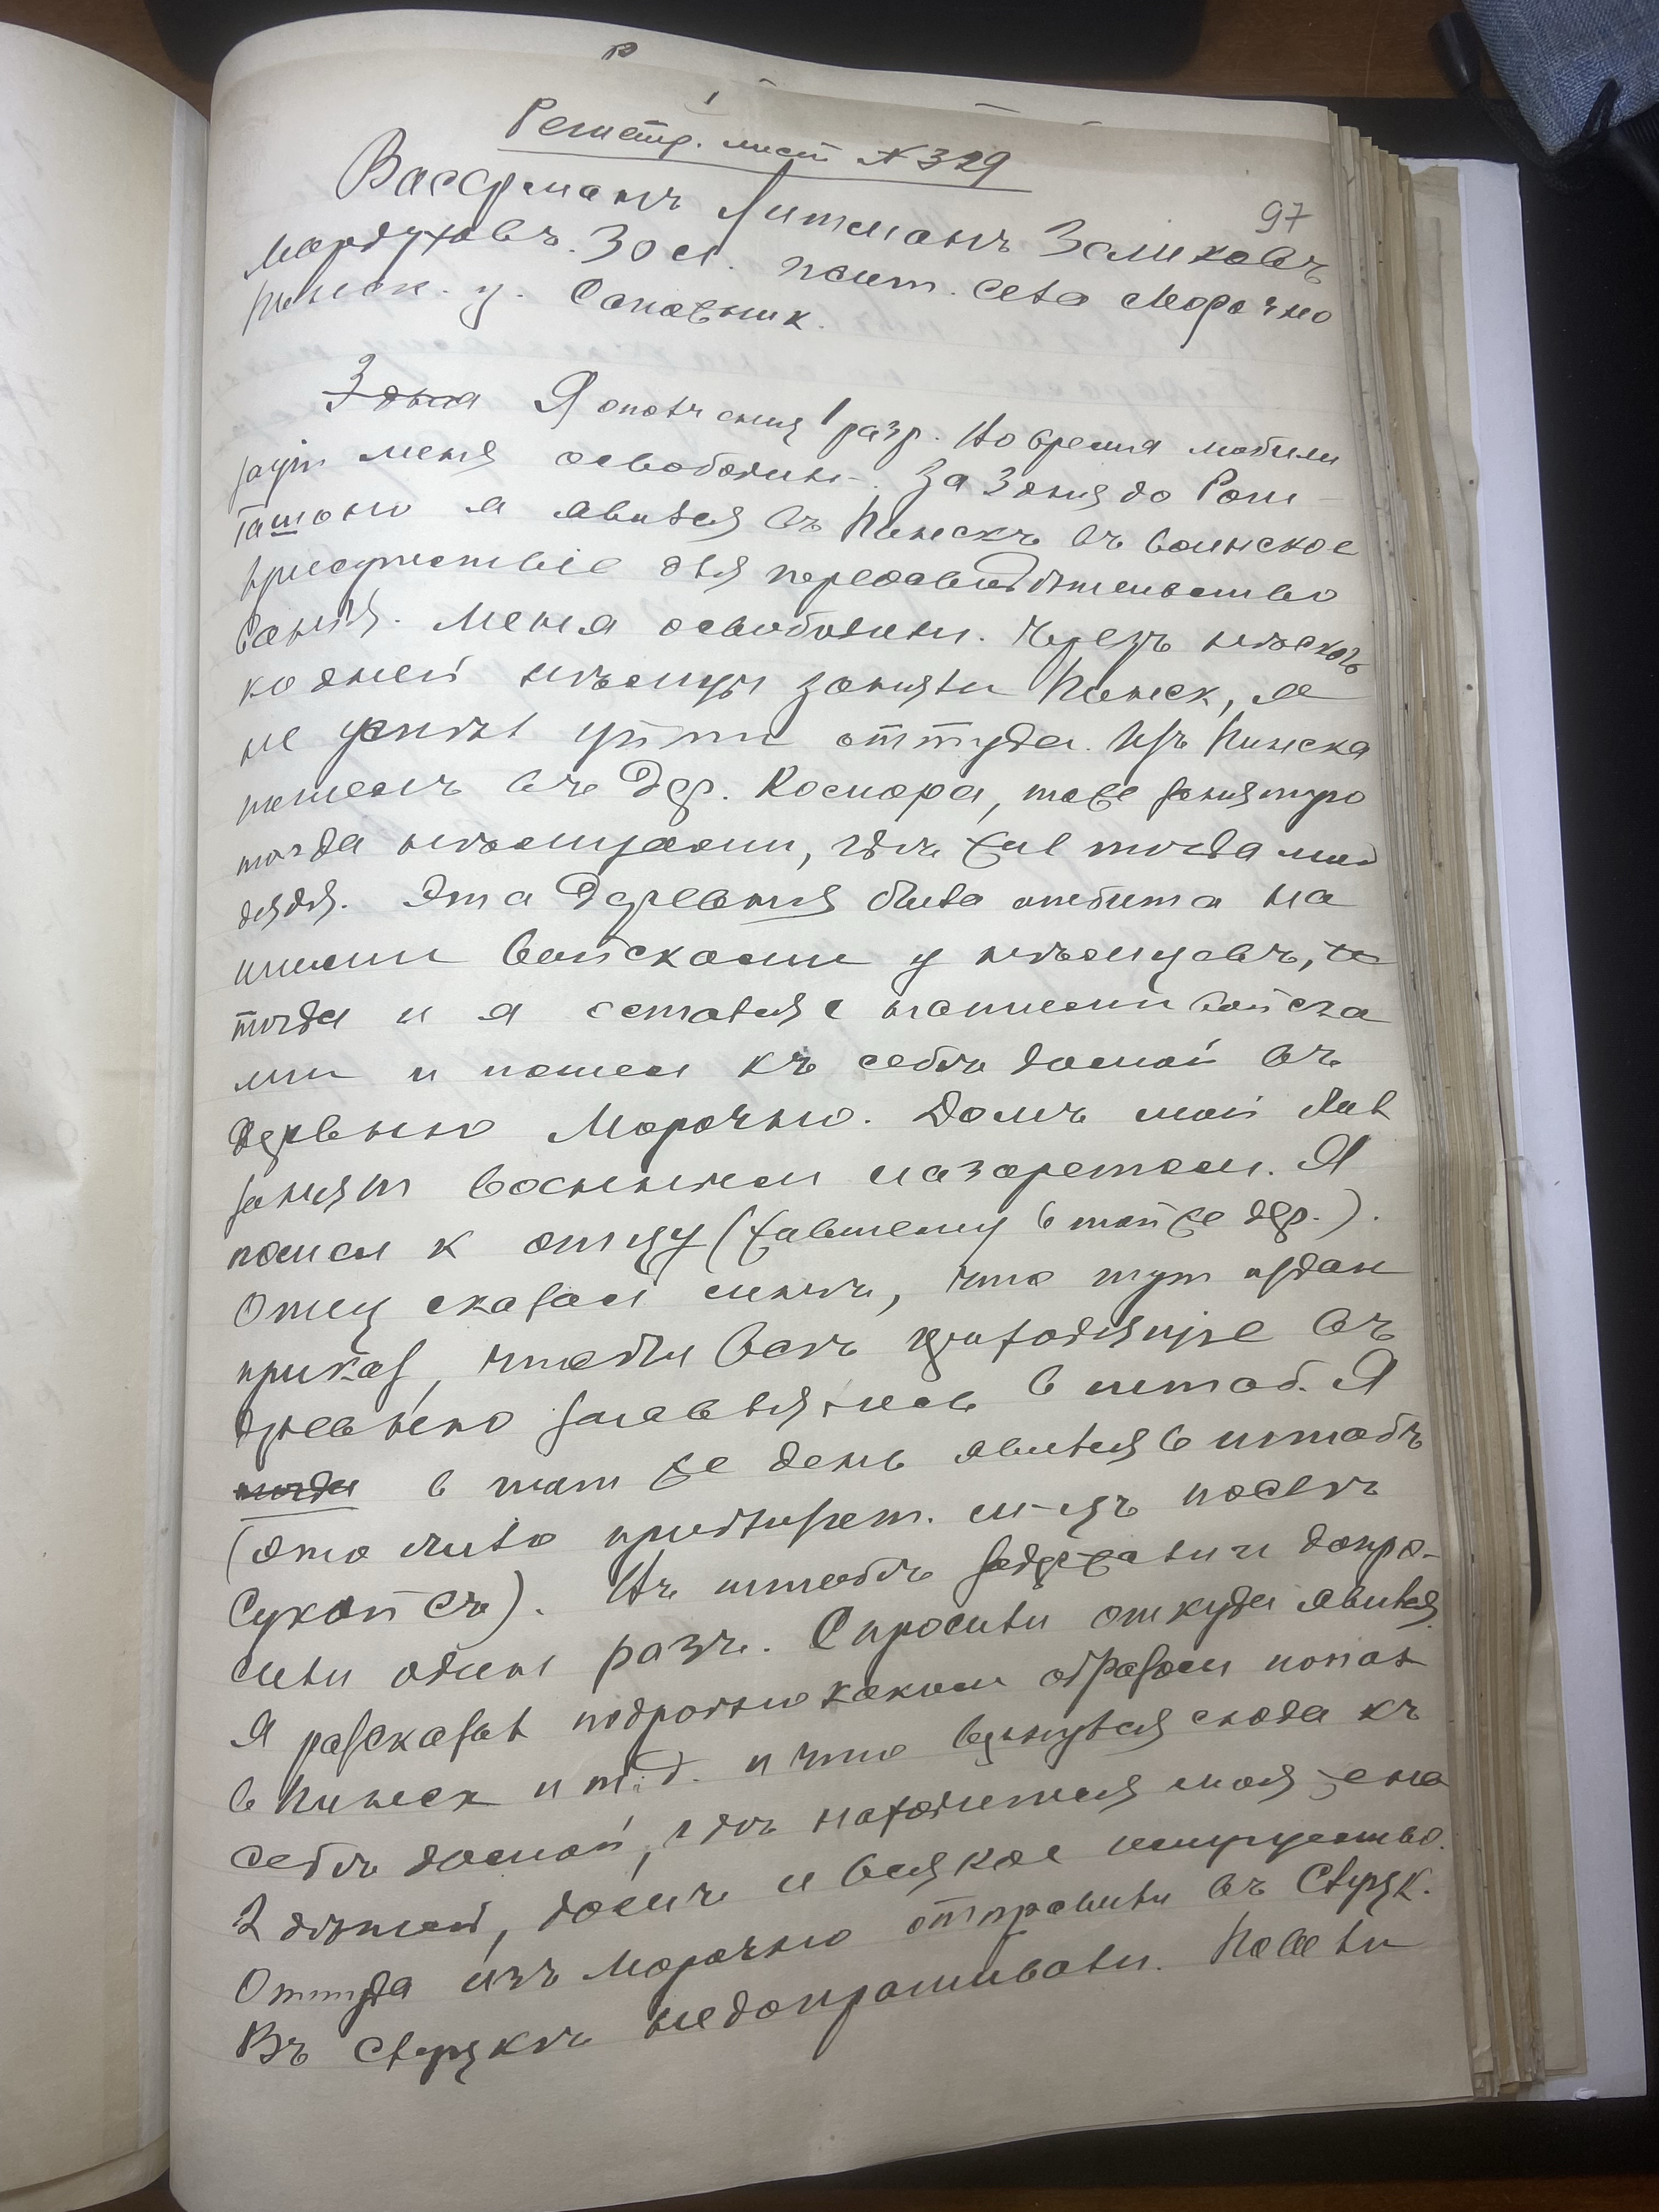 Регистр. лист № 329
97
Вассерманъ Литманъ Зеликовъ
Мордуховъ. 30 л. жит. села Морочно
Пинск. у. Сапожник.
З дня Я ополченец 1 разр. Во время мобили
зацiи меня освободили. За 3 дня до Рош-
гашоно я явился въ Пинскъ въ воинское
присутствiе для переосвидѣтельство
ванiя. Меня освободили. Черезъ нѣсколь
ко дней нѣмцы заняли Пинск, я
не успѣл уйти оттуда. Изъ Пинска
пошелъ въ дер. , тоже занятую
тогда нѣмцами, гдѣ жил тогда мой
дядя. Эта деревня была отбита на
шими войсками у нѣмцевъ, и
тогда и я остался с нашими войска
ми и пошел къ себѣ домой въ
деревню Морочно. Домъ мой был
занят военным лазаретом. Я
пошел к отцу (жившему в той же дер.).
Отец сказал мнѣ, что тут издан
приказ, чтобы всѣ приходящiе въ
деревню заявлялись в штаб. Я
тогда в тот же день явился в штабъ
(это было мѣ-цъ послѣ
Сукойсъ). Въ штабѣ задержали и допро-
сили один разъ. Спросили откуда явился.
Я рассказал подробно каким образом попал
в Пинск и т.д. и что вернулся сюда къ
себѣ домой, гдѣ находится моя жена
2 дѣтей, домъ и всякое имущество.
Оттуда изъ Морочно отправили въ Слуцк.
Въ Слуцкѣ не допрашивали.